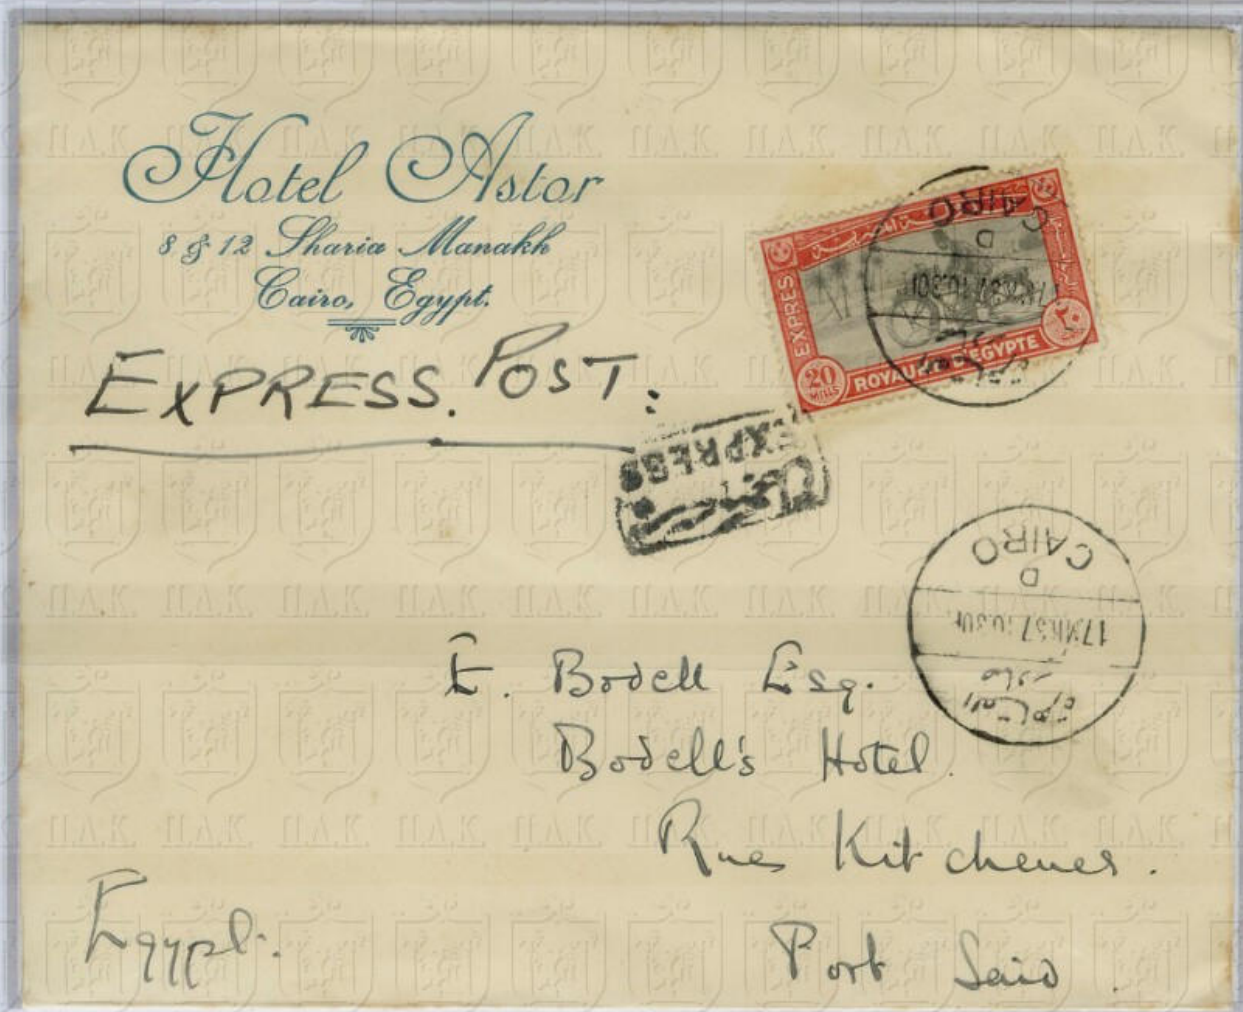 Hotel Astor
8 & 12 Sharia Manakh
Cairo, Egypt.
EXPRESS. POST:
EXPRES
20
MILLS
ROYAUME D'EGYPTE
٢٠
CAIRO
D
EXPRESS
مستعجل
CAIRO
D
17 MR 37 10.30
القاهرة
صادر
E. Bodell Esq.
Bodell's Hotel.
Rue Kitchener.
Port Said.
Egypt.